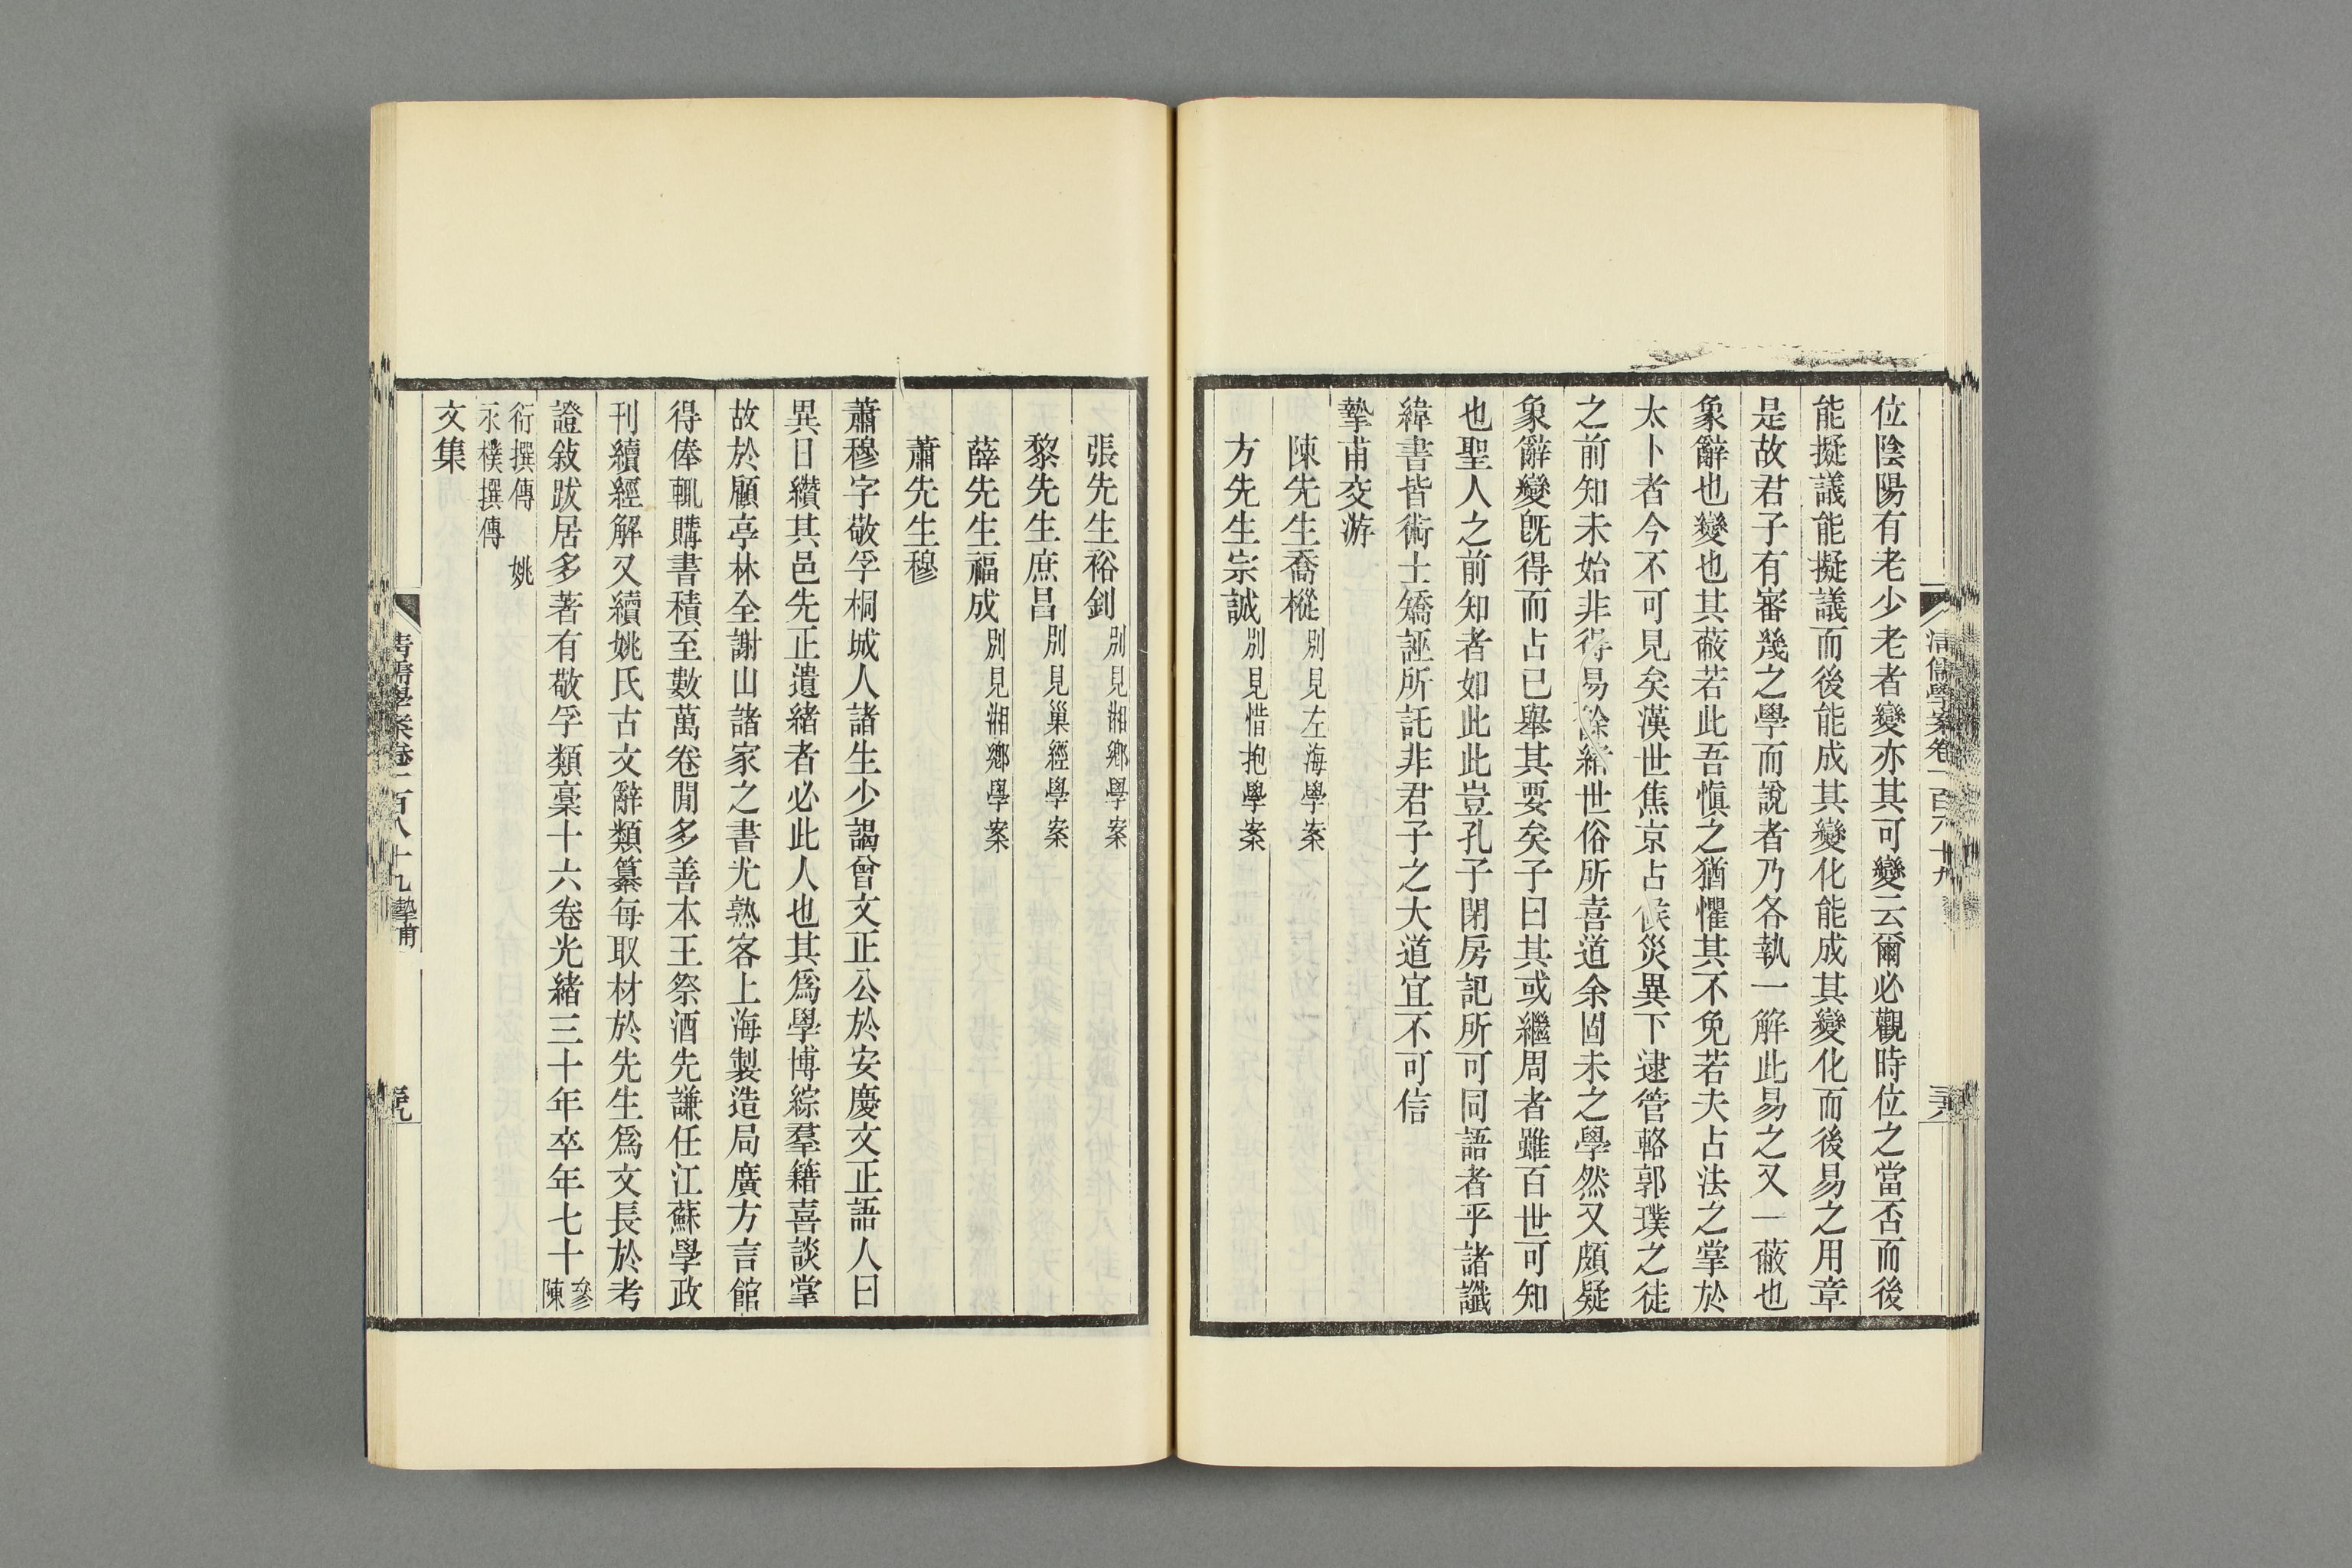 位陰陽有老少老者變亦其可變云爾必觀時位之當否而後
能擬議能擬議而後能成其變化能成其變化而後易之用章
是故君子有審幾之學而說者乃各執一解此易之又一蔽也
象辭也變也其蔽若此吾愼之猶懼其不免若夫占法之掌於
太卜者今不可見矣漢世焦京占候災異下逮管輅郭璞之徒
之前知未始非得易餘緒世俗所喜道余固未之學然又頗疑
象辭變旣得而占已舉其要矣子曰其或繼周者雖百世可知
也聖人之前知者如此此豈孔子閉房記所可同語者乎諸讖
緯書皆術士矯誣所託非君子之大道宜不可信
摯甫交游
陳先生喬樅別見左海學案
方先生宗誠別見惜抱學案
張先生裕釗別見湘鄉學案
黎先生庶昌別見巢經學案
薛先生福成別見湘鄉學案
蕭先生穆
蕭穆字敬孚桐城人諸生少謁曾文正公於安慶文正語人曰
異日纘其邑先正遺緒者必此人也其爲學博綜羣籍喜談掌
故於顧亭林全謝山諸家之書尤熟客上海製造局廣方言館
得俸輒購書積至數萬卷閒多善本王祭酒先謙任江蘇學政
刊續經解又續姚氏古文辭類纂每取材於先生爲文長於考
證敍跋居多著有敬孚類稾十六卷光緒三十年卒年七十參陳
衍撰傳 姚
永樸撰傳
文集
清儒學案卷一百八十九 摯甫